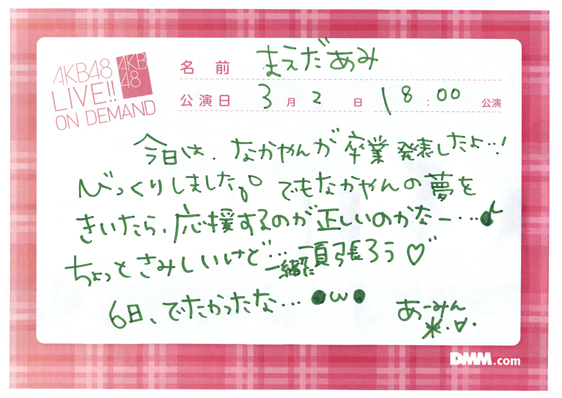 AKB48
LIVE!!
ON DEMAND
AKB
48
名前 まえだあみ
公演日 3月2日 18:00 公演
今日は、なかやんが卒業発表したよ…!
びっくりしました。でもなかやんの夢を
きいたら、応援するのが正しいのかなー…
ちょっとさみしいけど…一緒に頑張ろう♡
6日、でたかったな…●ω●
あーみん
DMM.com